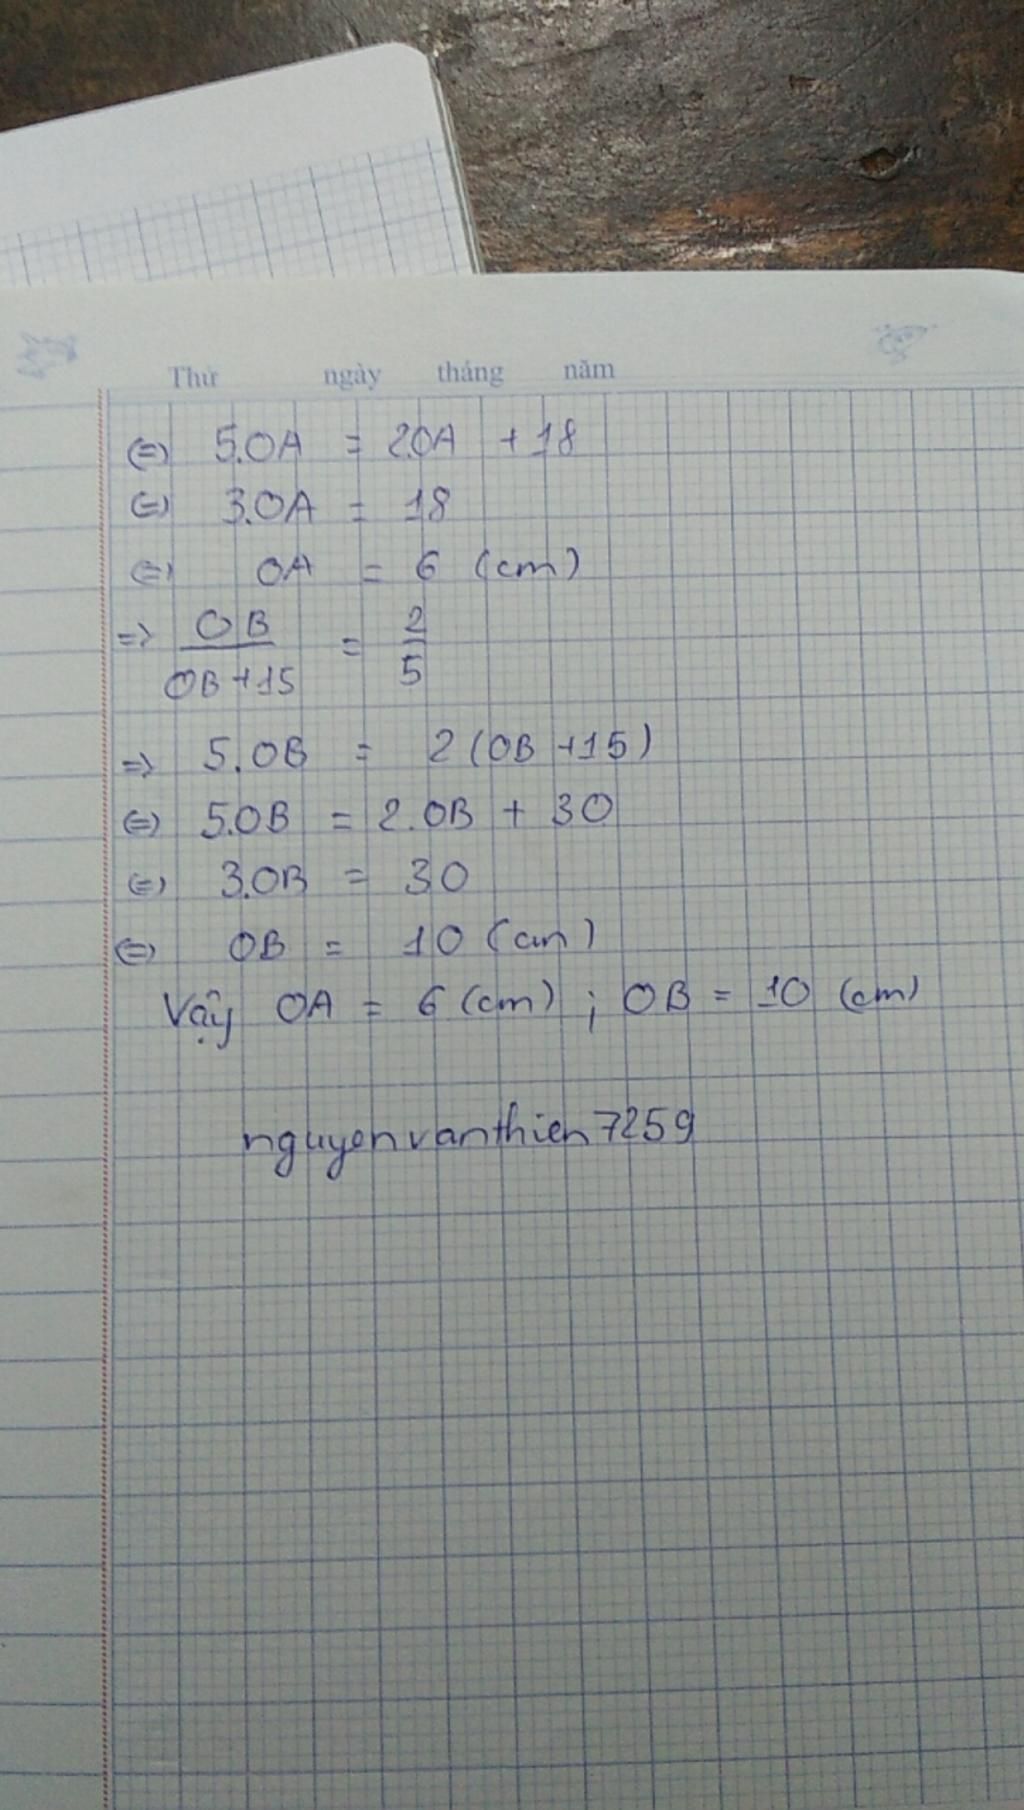 Thứ ngày tháng năm
(=) 5.OA = 2.OA + 18
(=) 3.OA = 18
(=) OA = 6 (cm)
=> OB / OB+15 = 2 / 5
=> 5.OB = 2(OB+15)
(=) 5.OB = 2.OB + 30
(=) 3.OB = 30
(=) OB = 10 (cm)
Vậy OA = 6 (cm) ; OB = 10 (cm)
nguyenvanthien7259